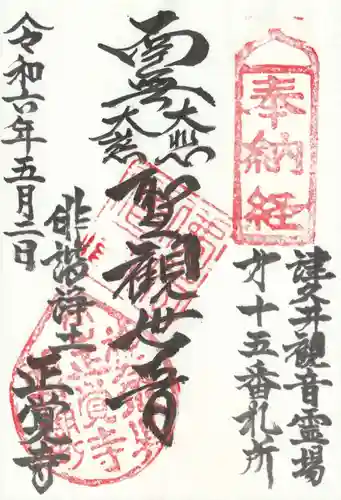 奉納経
津久井観音霊場
第十五番札所
大悲
大慈
聖観世音
俳諧浄土
正覚寺
令和六年五月二日